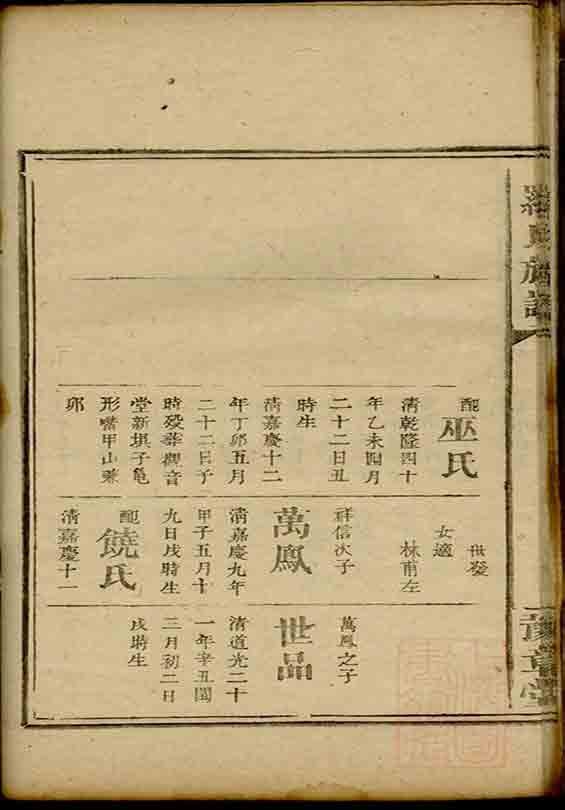 羅氏族譜
豫章堂
配
巫氏
清乾隆四十
年乙未四月
二十二日丑
時生
清嘉慶十二
年丁卯五月
二十二日子
時殁葬觀音
堂新垻子龜
形嘴甲山兼
卯
世發
女適
林甫左
祥信次子
萬鳳
清嘉慶九年
甲子五月十
九日戌時生
配
饒氏
清嘉慶十一
萬鳳之子
世品
清道光二十
一年辛丑閏
三月初二日
戌時生